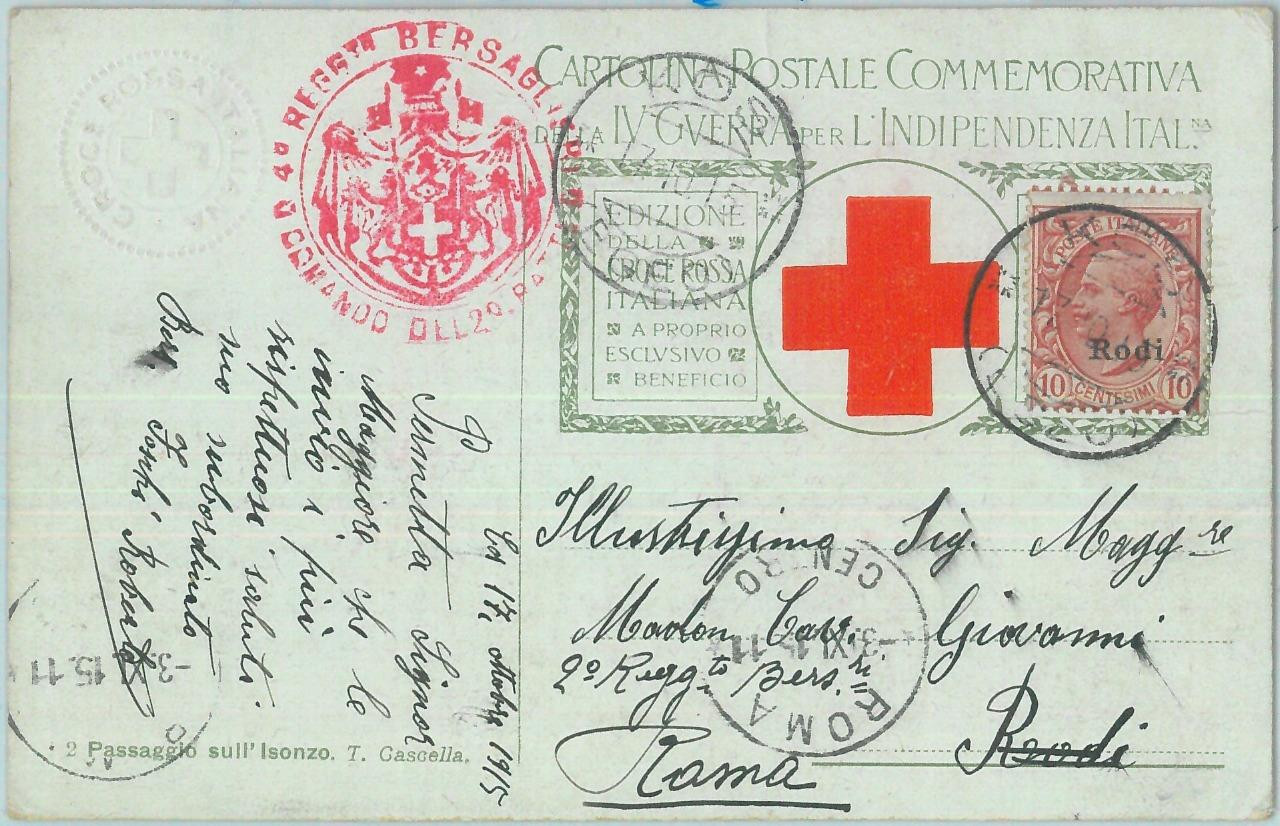 CROCE ROSSA ITALIANA
COMANDO DLL 20. BATT
BERSAGLIERI
CARTOLINA POSTALE COMMEMORATIVA
DELLA IV GVERRA PER L'INDIPENDENZA ITAL.NA
EDIZIONE
DELLA
CROCE ROSSA
ITALIANA
A PROPRIO
ESCLVSIVO
BENEFICIO
POSTE ITALIANE
Rodi
10 CENTESIMI 10
Illustrissimo Sig. Magg.re
Cav. Giovanni
2º Regg.to Bers.ri
Rodi
Roma
ROMA CENTRO
-3.XI.15.11
17, ottobre 1915
Permetta Signor
Maggiore che le
invio i più
rispettuosi saluti.
suo subordinato
Roberto
Bers.
-3.XI.15.11
2 Passaggio sull'Isonzo. T. Cascella.